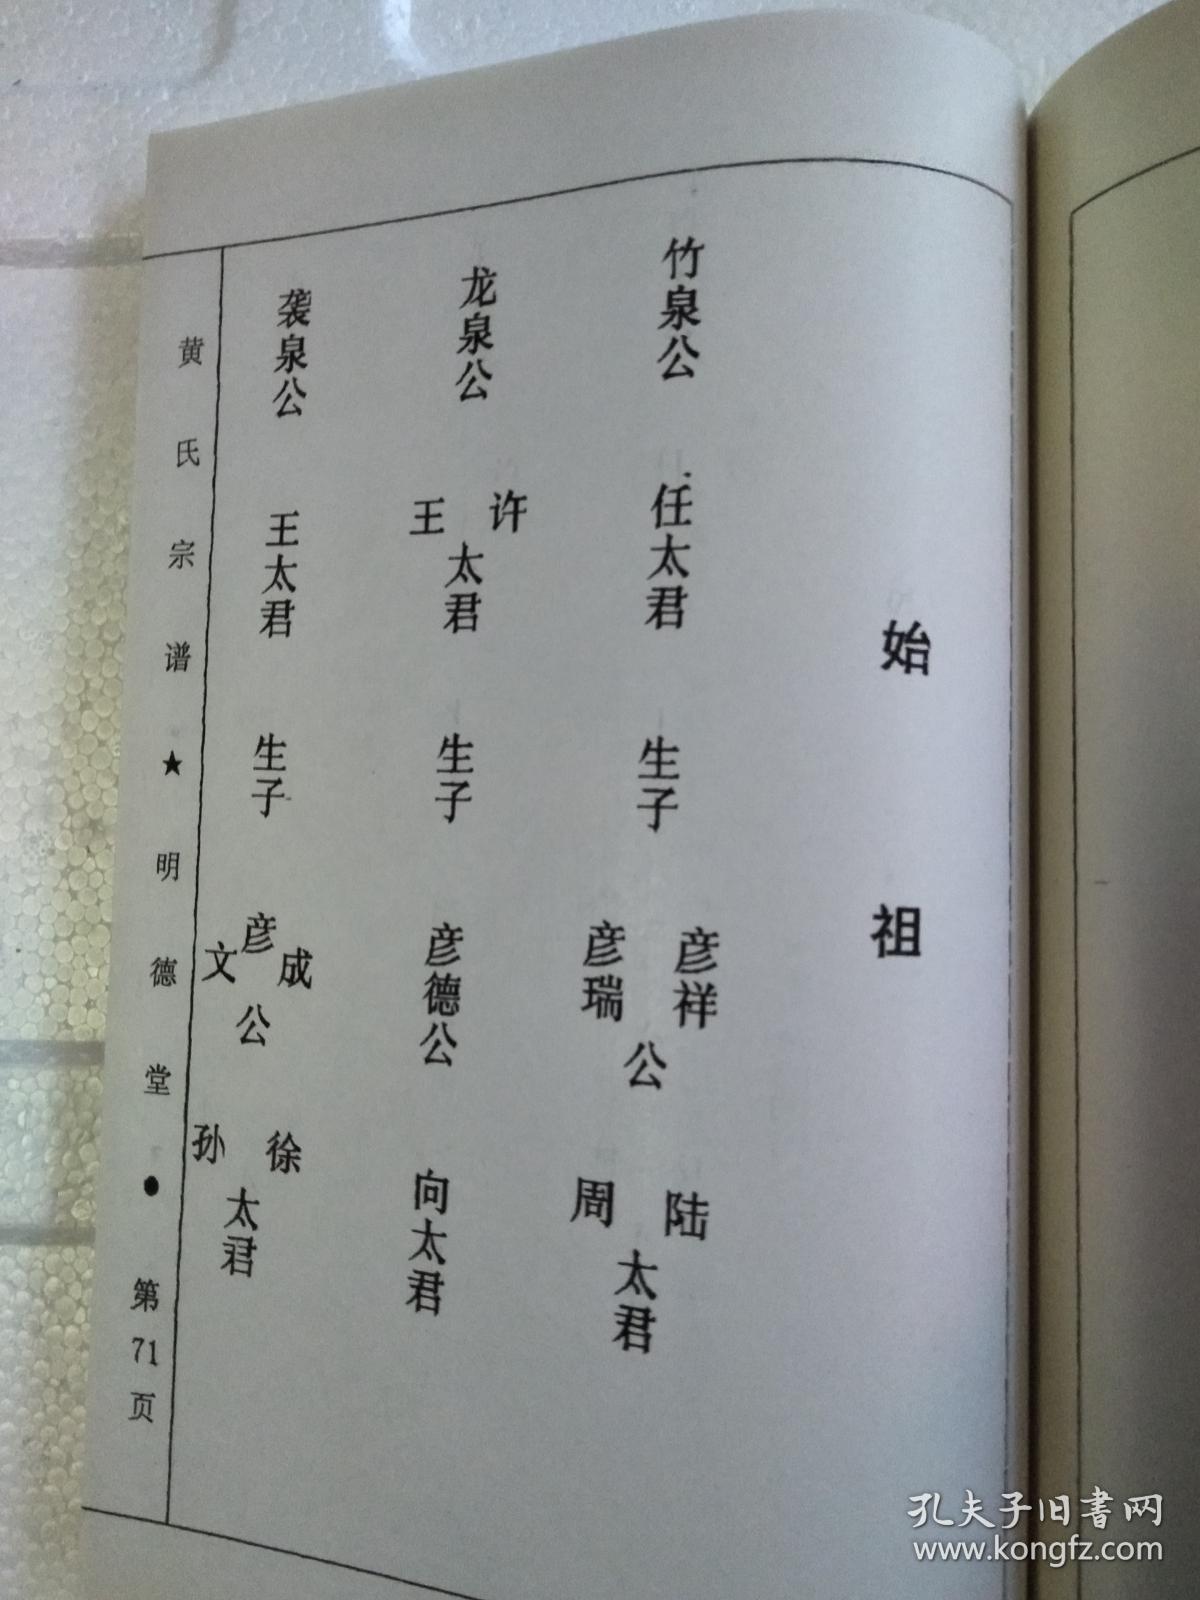 始祖
竹泉公 任太君 生子 彦祥 彦瑞 公 陆 周 太君
龙泉公 许 王 太君 生子 彦德公 向太君
袭泉公 王太君 生子 彦 成 文 公 徐 孙 太君
黄氏宗谱★明德堂●第71页
孔夫子旧书网
www.kongfz.com